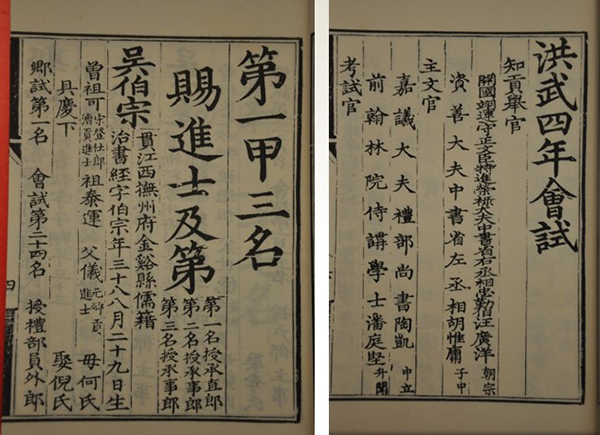 洪武四年會試
知貢舉官
開國翊運守正文臣特進榮祿大夫中書省右丞相忠勤伯汪廣洋 朝宗
資善大夫中書省左丞相胡惟庸 子中
主文官
嘉議大夫禮部尚書陶凱 中立
前翰林院侍講學士潘庭堅 升聞
考試官
第一甲三名
賜進士及第
第一名授承直郎
第二名授承事郎
第三名授承事郎
吳伯宗
貫江西撫州府金谿縣儒籍
治書經字伯宗年三十八八月二十九日生
曾祖可 宋登仕郎漕貢進士 祖泰運 父儀 元鄉貢進士 毋何氏
具慶下 娶倪氏
鄉試第一名 會試第二十四名 授禮部員外郎
四